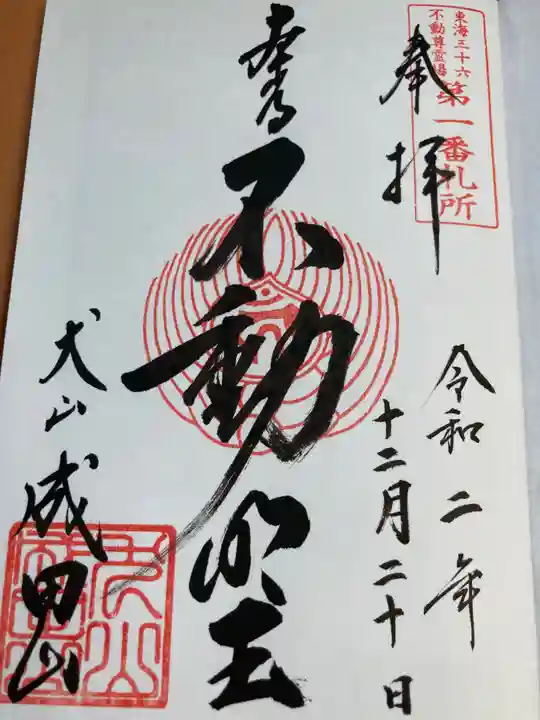 東海三十六
不動尊霊場
第一番札所
奉拝
令和二年
十二月二十日
本尊
不動明王
犬山成田山